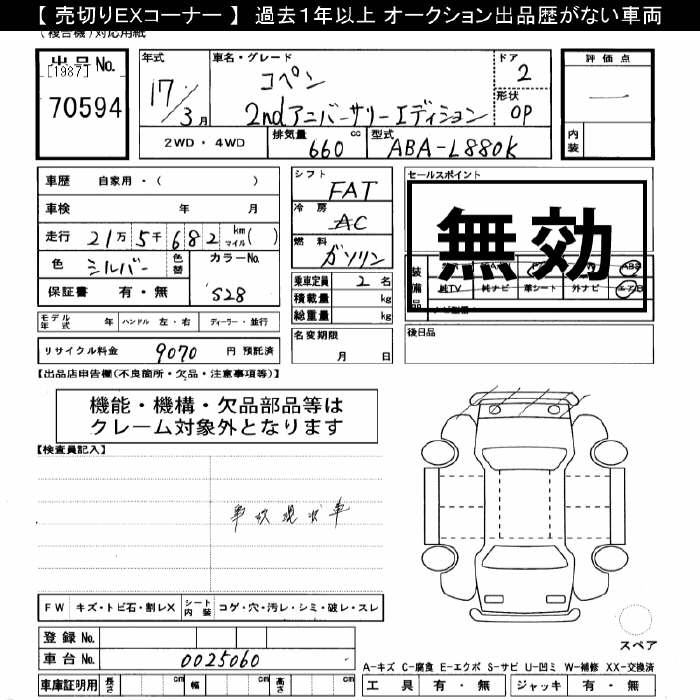 【 売切りEXコーナー 】 過去１年以上 オークション出品歴がない車両
(複合機)対応用紙
出品No.
[1987]
70594
年式
17 3月
車名・グレード
コペン
2ndアニバーサリーエディション
ドア
2
形状
OP
評価点
―
内装
2WD ・ 4WD
排気量 660 cc
型式 ABA-L880K
車歴 自家用・( )
車検 年 月
走行 21万5千682 km マイル( )
色 シルバー 色替 カラーNo.
保証書 有・無 S28
モデル年式 年 ハンドル 左・右 ディーラー・並行
リサイクル料金 9070 円 預託済
シフト FAT
冷房 AC
燃料 ガソリン
乗車定員 2 名
積載量 kg
総重量 kg
名変期限
月 日
セールスポイント
無効
装備品
純TV 純ナビ 革シート 外ナビ エアB
後日品
【出品店申告欄(不良箇所・欠品・注意事項等)】
機能・機構・欠品部品等は
クレーム対象外となります
【検査員記入】
事故現状車
FW キズ・トビ石・割レX シート内装 コゲ・穴・汚レ・シミ・破レ・スレ
登録 No.
車台 No. 0025060
車庫証明用 長さ cm 幅 cm 高さ cm
スペア
A-キズ C-腐食 E-エクボ S-サビ U-凹ミ W-補修 XX-交換済
工具 有・無 ジャッキ 有・無